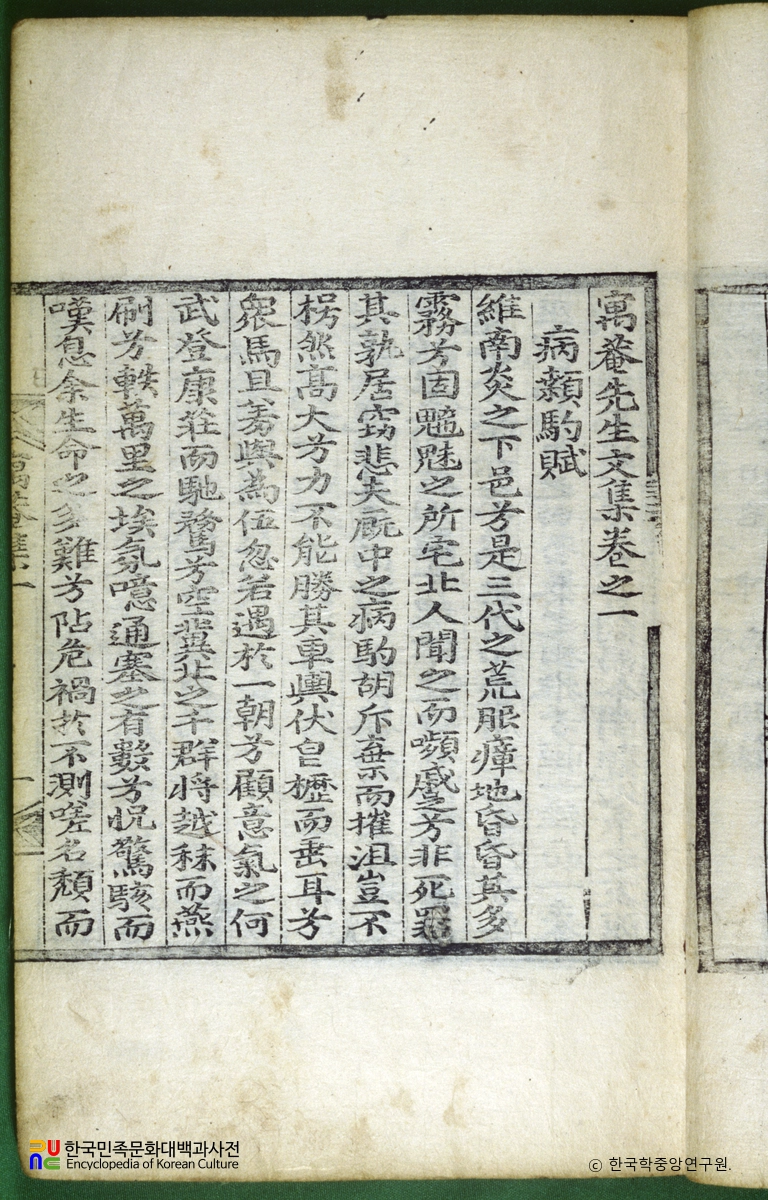 寓菴先生文集卷之一
病顙駒賦
維南炎之下邑兮是三代之荒服瘴地昏昏其多
霧兮固魑魅之所宅北人聞之而嚬蹙兮非死罪
其孰居窃悲夫廐中之病駒胡斥棄而摧沮豈不
枴然高大兮力不能勝其車輿伏皀櫪而垂耳兮
衆馬且羞與為伍忽若遇於一朝兮顧意氣之何
武登康莊而馳騖兮空冀北之千群将越秣而燕
刷兮軼萬里之埃氛噫通塞之有數兮怳驚駭而
嘆息余生命之多難兮阽危禍於不測嗟名頽而
寓菴集 一
一
한국민족문화대백과사전
Encyclopedia of Korean Culture
© 한국학중앙연구원.